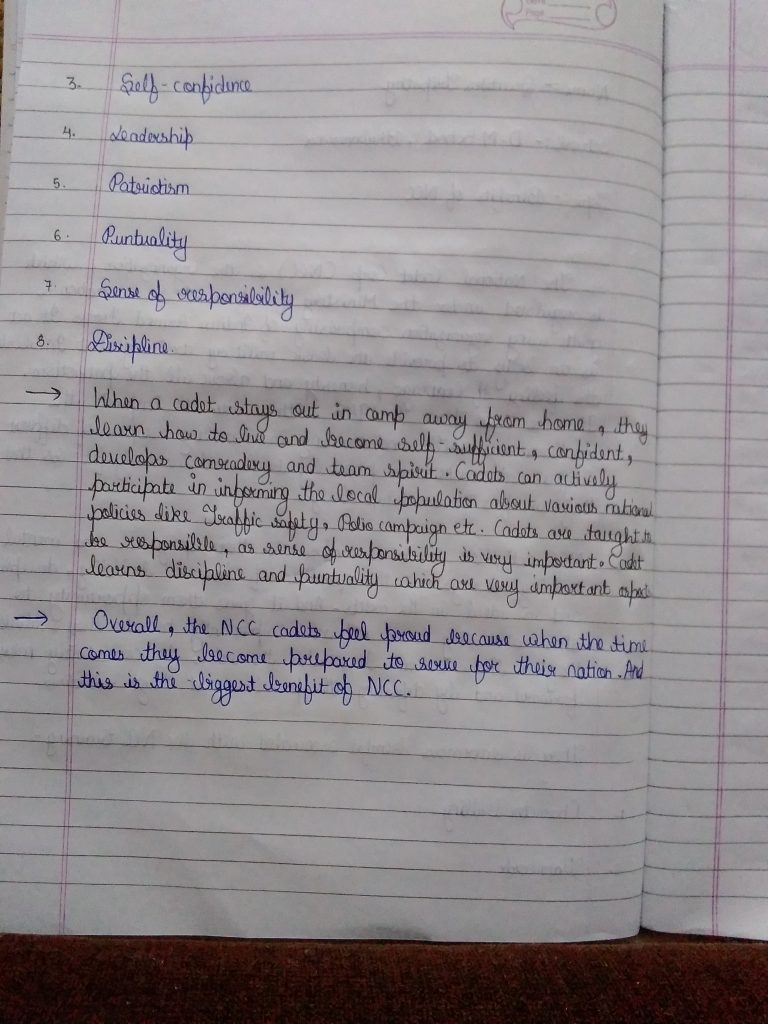 Page
3. Self-confidence
4. Leadership
5. Patriotism
6. Puntuality
7. Sense of responsibility
8. Discipline.
→ When a cadet stays out in camp away from home, they
learn how to live and become self-sufficient, confident,
develops comradery and team spirit. Cadets can actively
participate in informing the local population about various national
policies like Traffic safety, Polio campaign etc. Cadets are taught to
be responsible, as sense of responsibility is very important. Cadet
learns discipline and puntuality which are very important aspect
→ Overall, the NCC cadets feel proud because when the time
comes they become prepared to serve for their nation. And
this is the biggest benefit of NCC.